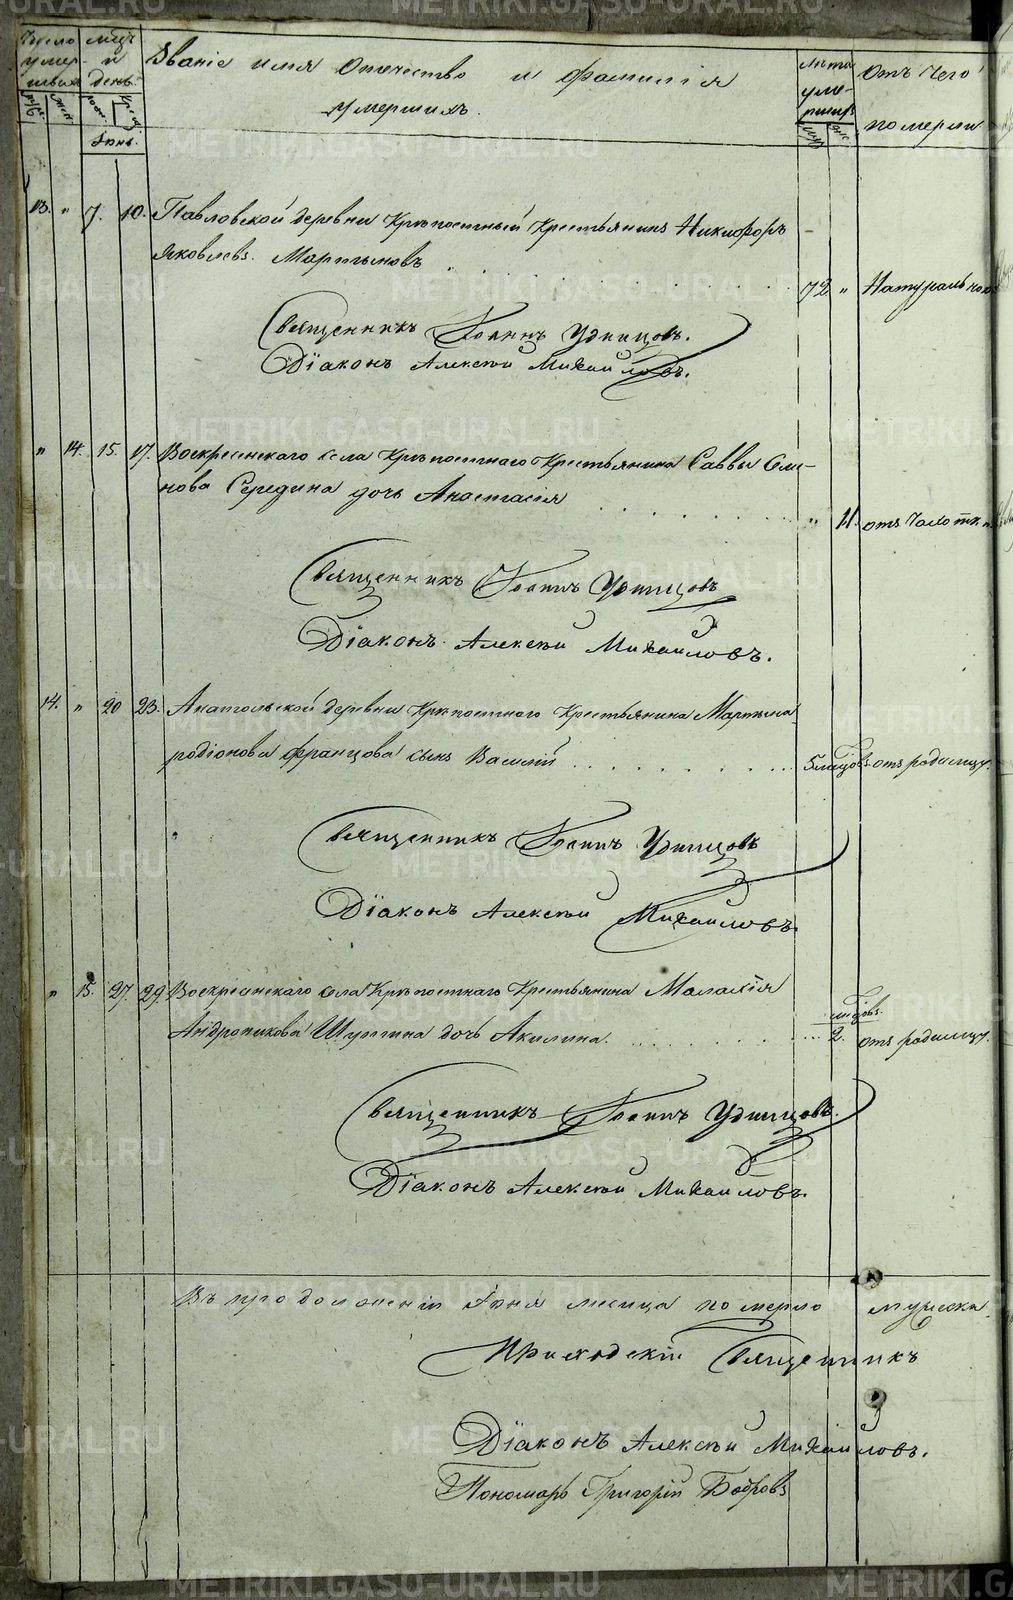 Число умер- шихъ
мцъ и день.
Званіе имя отечество и фамилія
умершихъ.
лѣта умер- шихъ
отъ чего
померли
Іюнь.
13. " 7. 10. Павловской деревни Крѣпостный Крестьянинъ Никифоръ
Яковлевъ Мартыновъ 72 " Натурально
Священникъ Іоаннъ Удинцовъ.
Діаконъ Алексѣй Михайловъ.
" 14. 15. 17. Воскресенскаго села Крѣпостнаго Крестьянина Саввы Семе-
нова Середина дочь Анастасія " 11. отъ чахотки
Священникъ Іоаннъ Удинцовъ
Діаконъ Алексѣй Михайловъ.
14. " 20 23. Анатольской деревни Крѣпостнаго Крестьянина Мартина
родіонова Францова сынъ Василій 5 мцовъ отъ родимцу.
Священникъ Іоаннъ Удинцовъ
Діаконъ Алексѣй Михайловъ.
" 15. 27. 29. Воскресенскаго села Крѣпостнаго Крестьянина Малахія
Андроникова Шупина дочь Акилина. мцовъ 2. отъ родимцу.
Священникъ Іоаннъ Удинцовъ.
Діаконъ Алексѣй Михайловъ.
Въ продолженіи Іюня месяца померло мужеска
Приходскій Священникъ
Діаконъ Алексѣй Михайловъ.
Пономарь Григорій Бобровъ
METRIKI.GASO-URAL.RU